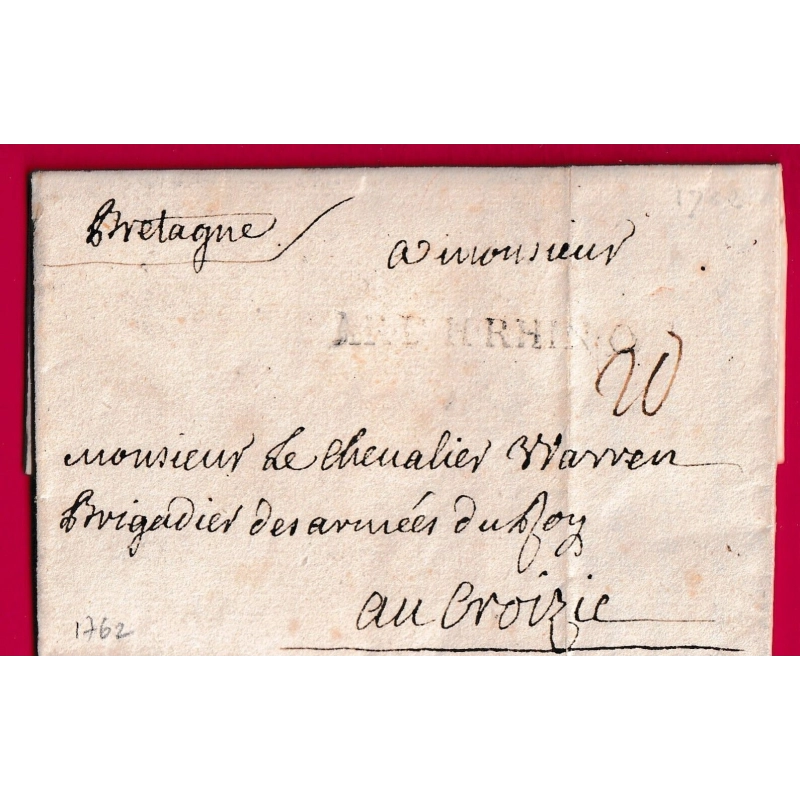 1762
Bretagne
a monsieur
ARE H RHIN
20
monsieur Le Chevalier Warren
Brigadier des armées du Roy
au Croizic
1762